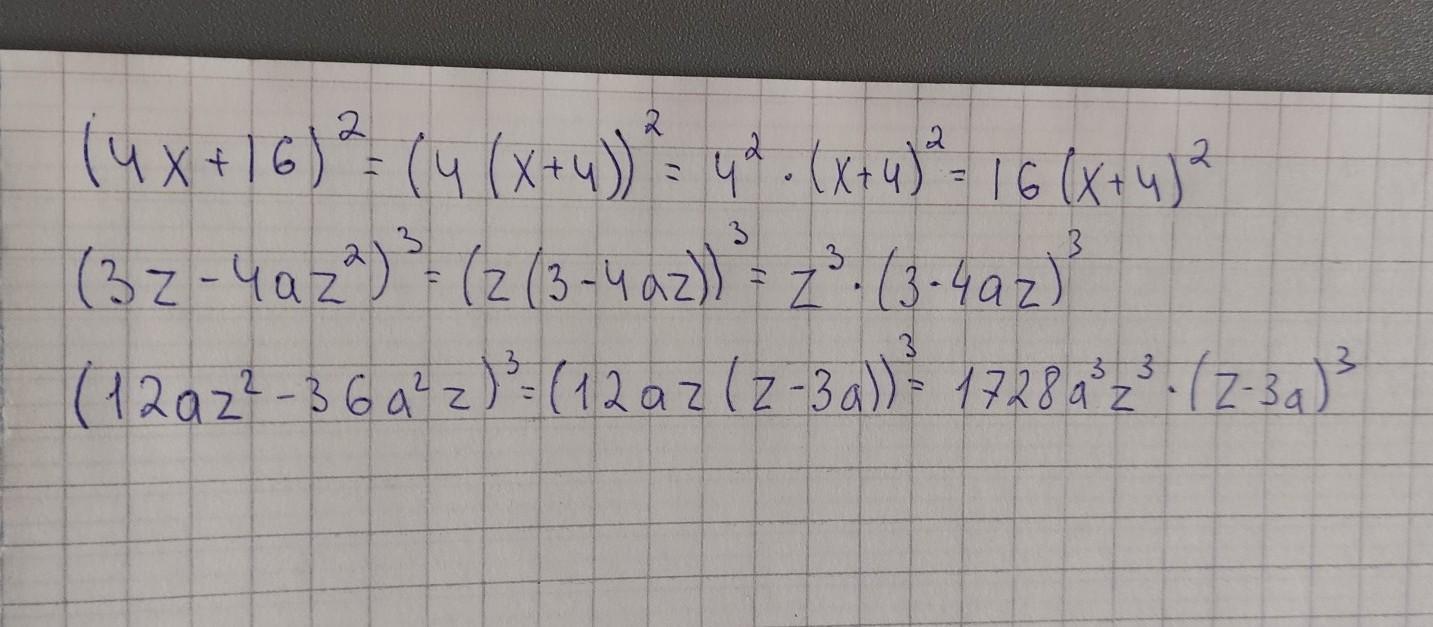 (4x+16)² = (4(x+4))² = 4² · (x+4)² = 16(x+4)²
(3z-4az²)³ = (z(3-4az))³ = z³ · (3-4az)³
(12az²-36a²z)³ = (12az(z-3a))³ = 1728a³z³ · (z-3a)³